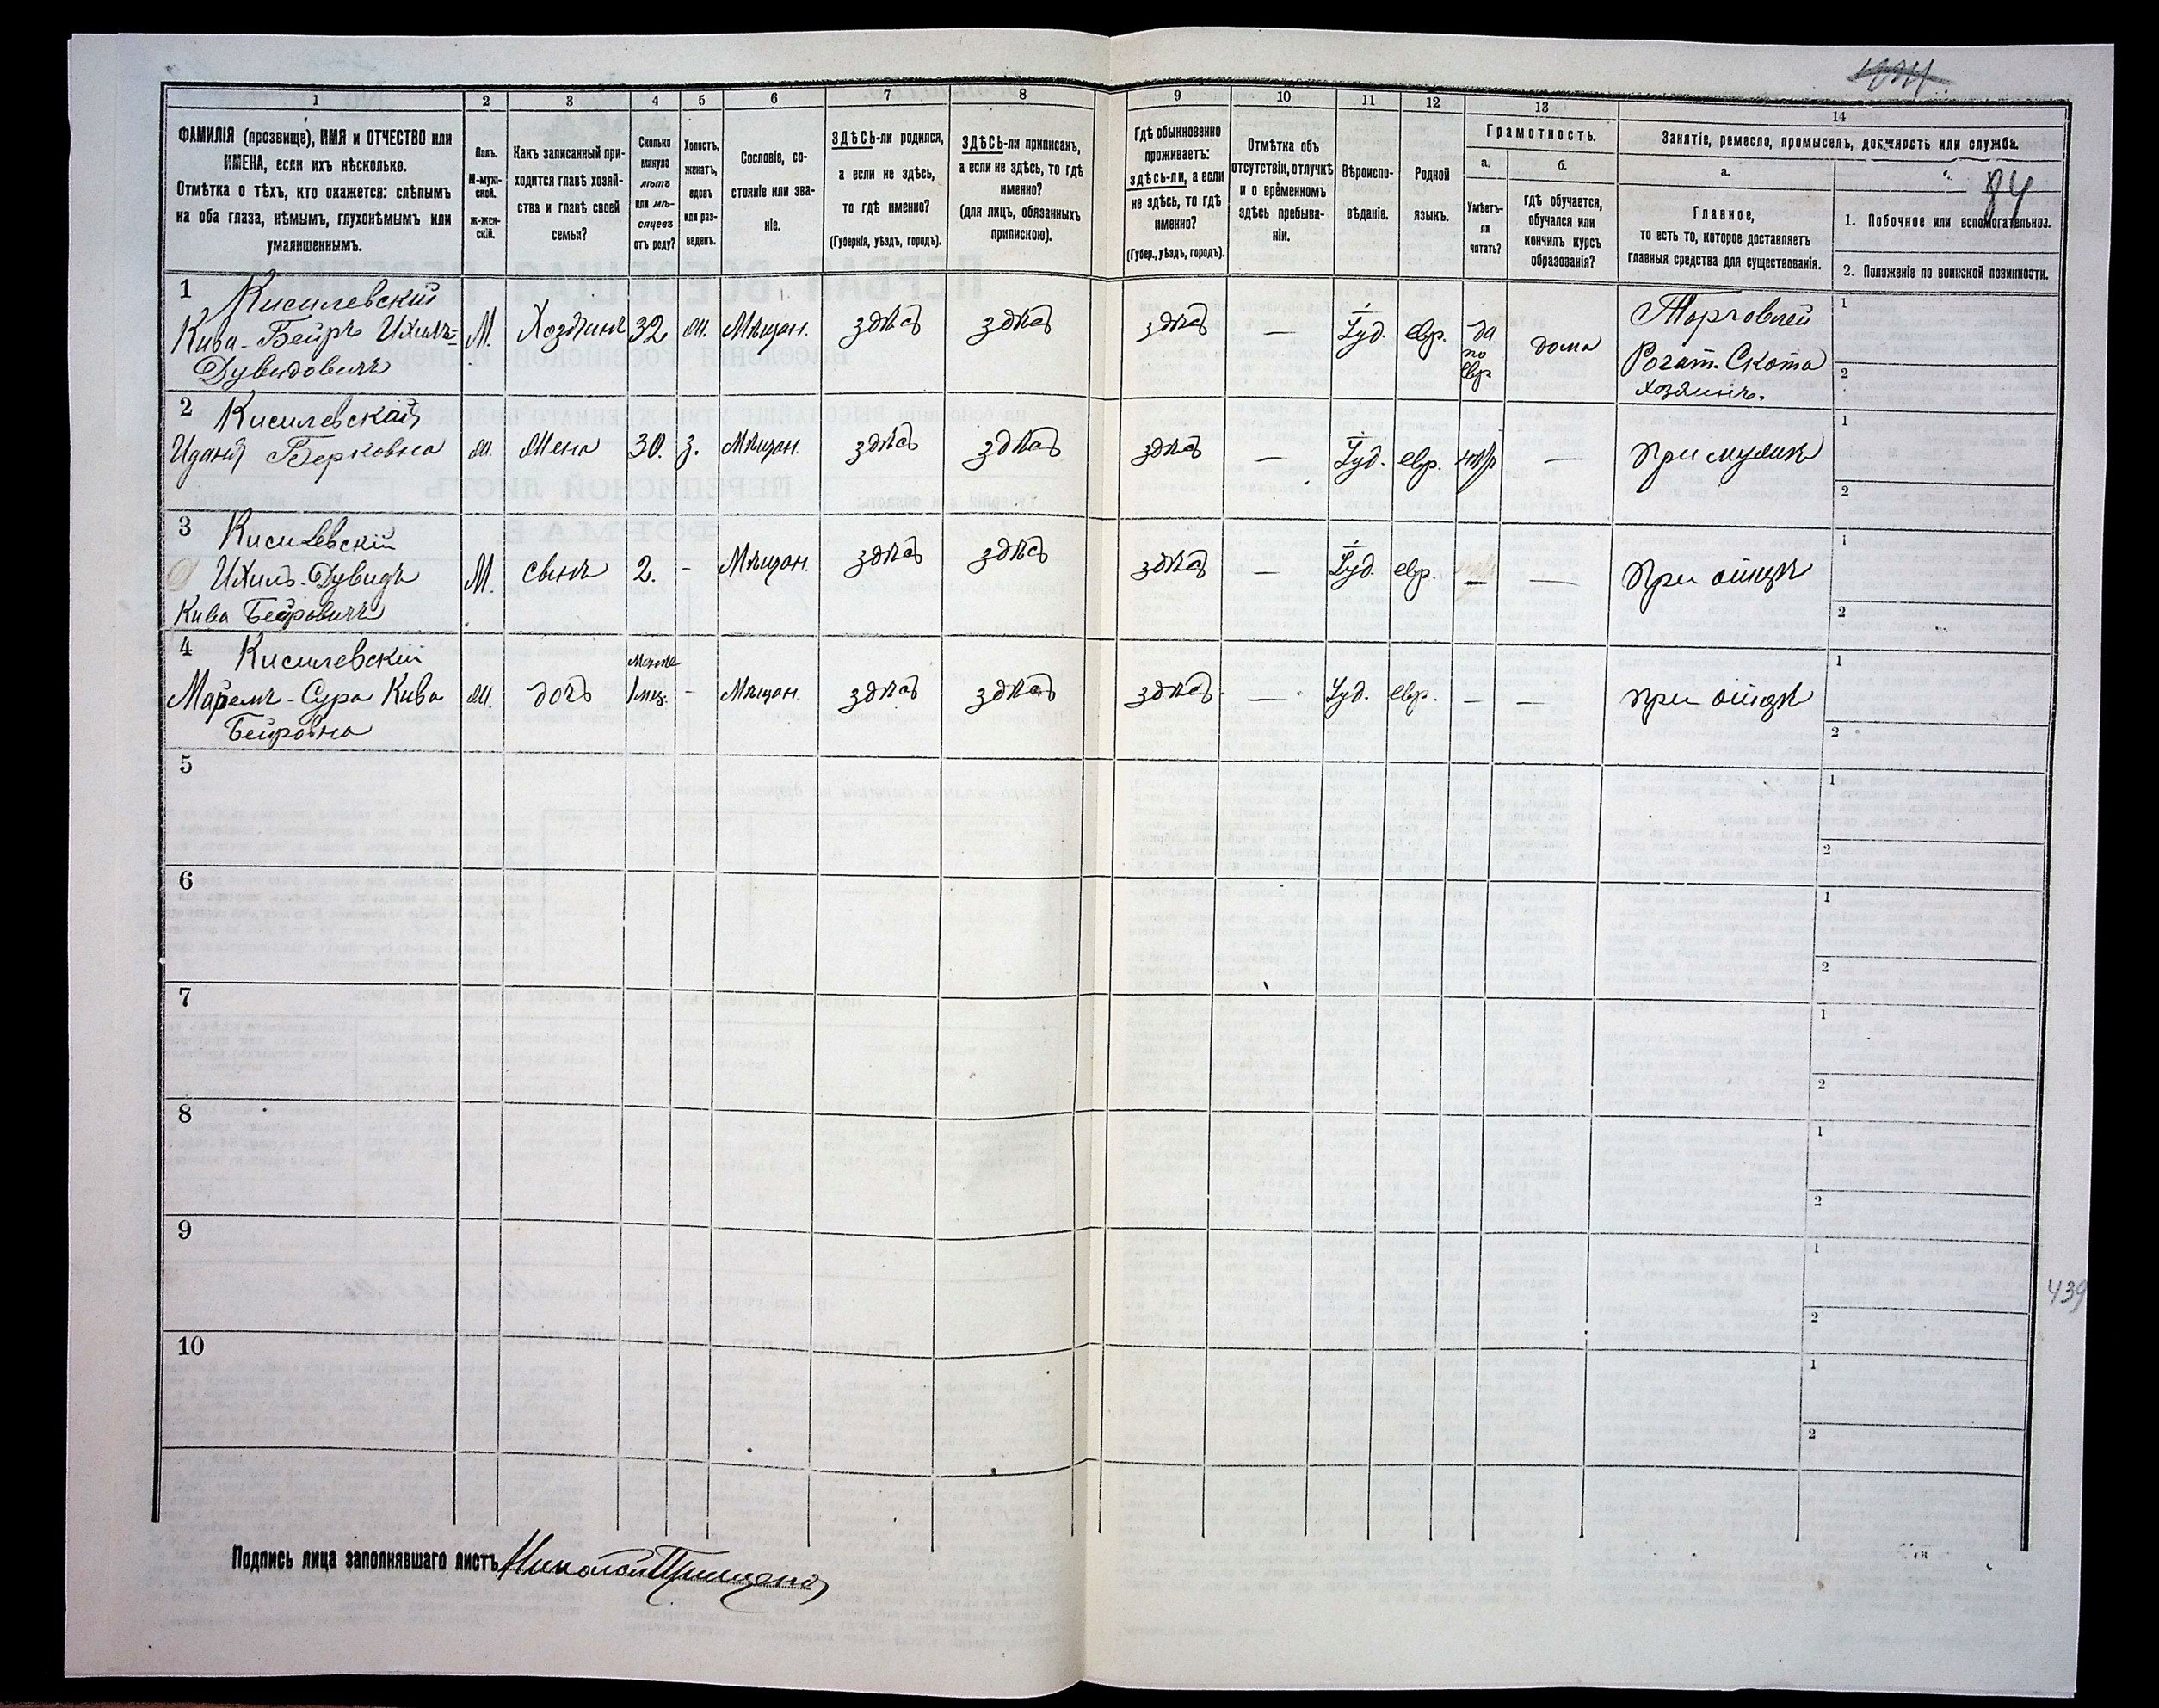 434
84
1
2
3
4
5
6
7
8
9
10
11
12
13
14
ФАМИЛІЯ (прозвище), ИМЯ и ОТЧЕСТВО или
ИМЕНА, если ихъ нѣсколько.
Отмѣтка о тѣхъ, кто окажется: слѣпымъ
на оба глаза, нѣмымъ, глухонѣмымъ или
умалишеннымъ.
Полъ.
М-муж-
ской.
ж-жен-
скій.
Какъ записанный при-
ходится главѣ хозяй-
ства и главѣ своей
семьи?
Сколько
минуло
лѣтъ
или мѣ-
сяцевъ
отъ роду?
Холостъ,
женатъ,
вдовъ
или раз-
веденъ.
Сословіе, со-
стояніе или зва-
ніе.
ЗДѢСЬ-ли родился,
а если не здѣсь,
то гдѣ именно?
(Губернія, уѣздъ, городъ).
ЗДѢСЬ-ли приписанъ,
а если не здѣсь, то гдѣ
именно?
(для лицъ, обязанныхъ
припискою).
Гдѣ обыкновенно
проживаетъ:
здѣсь-ли, а если
не здѣсь, то гдѣ
именно?
(Губер., уѣздъ, городъ).
Отмѣтка объ
отсутствіи, отлучкѣ
и о временномъ
здѣсь пребыва-
ніи.
Вѣроиспо-
вѣданіе.
Родной
языкъ.
Грамотность.
а.
Умѣетъ-
ли
читать?
б.
гдѣ обучается,
обучался или
кончилъ курсъ
образованія?
Занятіе, ремесло, промыселъ, должность или служба.
а.
Главное,
то есть то, которое доставляетъ
главныя средства для существованія.
1. Побочное или вспомогательное.
2. Положеніе по воинской повинности.
1 Кисилевскій
Кива-Бейръ Ихилъ=
Дувидовичъ
М. Хозяинъ 32 ж. Мѣщан. здѣсь здѣсь здѣсь — Іуд. евр. да по евр. дома
Торговлей
Рогат. Скота
хозяинъ.
1
2
2 Кисилевская
Берковна
ж. Жена 30. з. Мѣщан. здѣсь здѣсь здѣсь — Іуд. евр. нѣт — при мужѣ
1
2
3 Кисилевскій
Ихилъ-Дувидъ
Кива Бейровичъ
М. сынъ 2. - Мѣщан. здѣсь здѣсь здѣсь — Іуд. евр. — — при отцѣ
1
2
4 Кисилевскій
Сура Кива
Бейровна
ж. дочь 1 мѣс. - Мѣщан. здѣсь здѣсь здѣсь — Іуд. евр. — — при отцѣ
1
2
5
1
2
6
1
2
7
1
2
8
1
2
9
1
2
10
1
2
439
Подпись лица заполнявшаго листъ